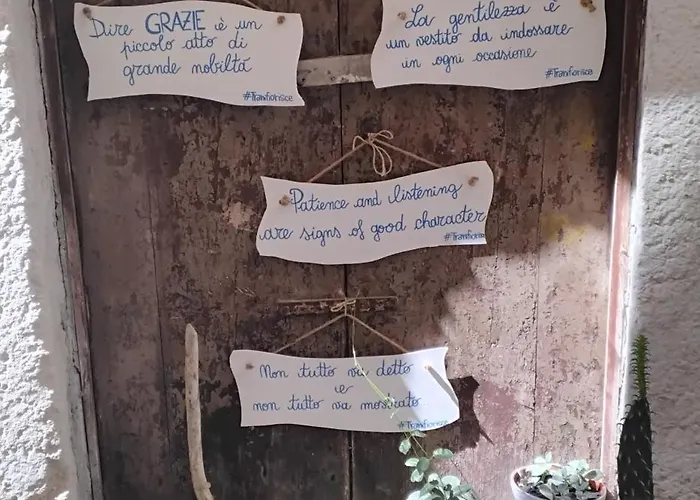 Dire GRAZIE è un
piccolo atto di
grande nobiltá
#Tranfiorisce
La gentilezza è
un vestito da indossare
in ogni occasione
#Tranfiorisce
Patience and listening
are signs of good character
#Tranfiorisce
Non tutto va detto
e
non tutto va mostrato
#Tranfiorisce